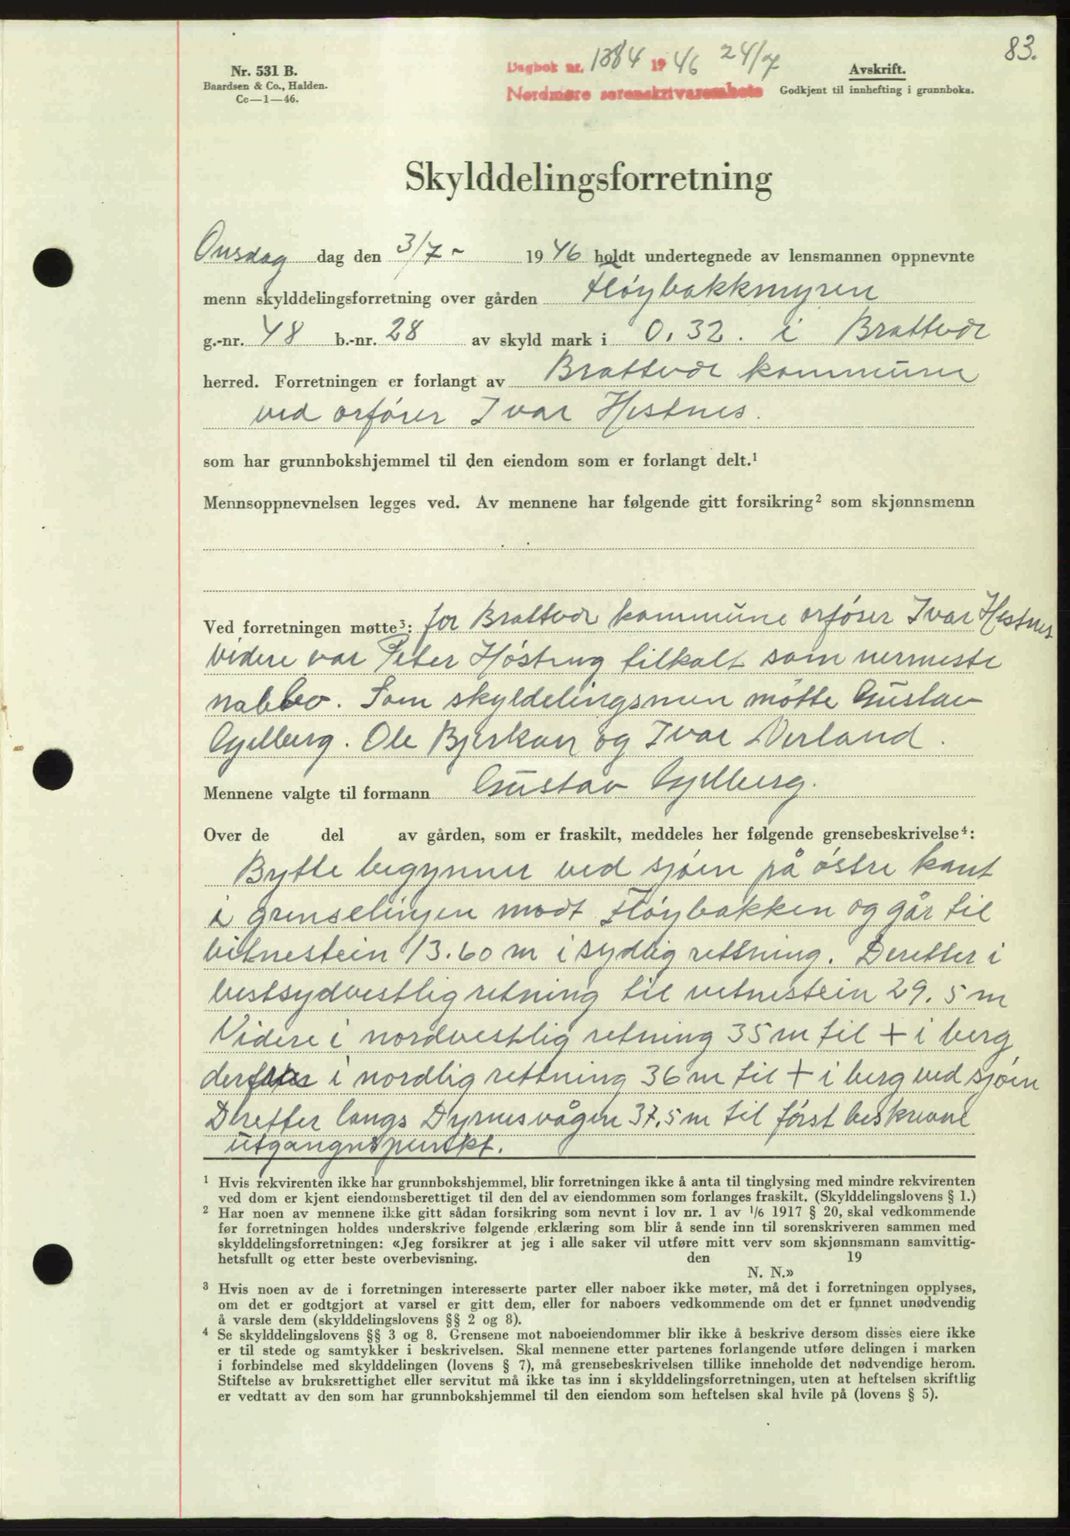 83.
Nr. 531 B.
Baardsen & Co., Halden.
Cc—1—46.
Dagbok nr. 1384 1946 24/7
Nordmøre sorenskriverembete
Avskrift.
Godkjent til innhefting i grunnboka.
Skylddelingsforretning
Onsdag dag den 3/7- 1946 holdt undertegnede av lensmannen oppnevnte
menn skylddelingsforretning over gården Fløybakkmyren
g.-nr. 48 b.-nr. 28 av skyld mark i 0,32. i Brattvær
herred. Forretningen er forlangt av Brattvær kommune
ved orfører Ivar Hestnes.
som har grunnbokshjemmel til den eiendom som er forlangt delt.¹
Mennsoppnevnelsen legges ved. Av mennene har følgende gitt forsikring² som skjønnsmenn
Ved forretningen møtte³: for Brattvær kommune orfører Ivar Hestnes
videre var Peter Høstrug tilkalt som nermeste
nabbo. Som skyldelingsmen møtte Gustav
Gjelberg. Ole Bjerkan og Ivar Verland.
Mennene valgte til formann Gustav Gjelberg.
Over de del av gården, som er fraskilt, meddeles her følgende grensebeskrivelse⁴:
Bytte begynner ved sjøen på østre kant
i grenselinjen modt Fløybakken og går til
vitnestein 13.60 m i sydlig rettning. Deretter i
vestsydvestlig retning til vitnestein 29.5 m
Videre i nordvestlig retning 35 m til + i berg
derfra i nordlig rettning 36 m til + i berg ved sjøen
Deretter langs Dyrnesvågen 37.5 m til først beskrevne
utgangnspunkt.
¹ Hvis rekvirenten ikke har grunnbokshjemmel, blir forretningen ikke å anta til tinglysing med mindre rekvirenten
ved dom er kjent eiendomsberettiget til den del av eiendommen som forlanges fraskilt. (Skylddelingslovens § 1.)
² Har noen av mennene ikke gitt sådan forsikring som nevnt i lov nr. 1 av ¹/₆ 1917 § 20, skal vedkommende
før forretningen holdes underskrive følgende erklæring som blir å sende inn til sorenskriveren sammen med
skylddelingsforretningen: «Jeg forsikrer at jeg i alle saker vil utføre mitt verv som skjønnsmann samvittig-
hetsfullt og etter beste overbevisning. den 19
N. N.»
³ Hvis noen av de i forretningen interesserte parter eller naboer ikke møter, må det i forretningen opplyses,
om det er godtgjort at varsel er gitt dem, eller for naboers vedkommende om det er funnet unødvendig
å varsle dem (skylddelingslovens §§ 2 og 8).
⁴ Se skylddelingslovens §§ 3 og 8. Grensene mot naboeiendommer blir ikke å beskrive dersom disses eiere ikke
er til stede og samtykker i beskrivelsen. Skal mennene etter partenes forlangende utføre delingen i marken
i forbindelse med skylddelingen (lovens § 7), må grensebeskrivelsen tillike inneholde det nødvendige herom.
Stiftelse av bruksrettighet eller servitut må ikke tas inn i skylddelingsforretningen, uten at heftelsen skriftlig
er vedtatt av den som har grunnbokshjemmel til den eiendom som heftelsen skal hvile på (lovens § 5).